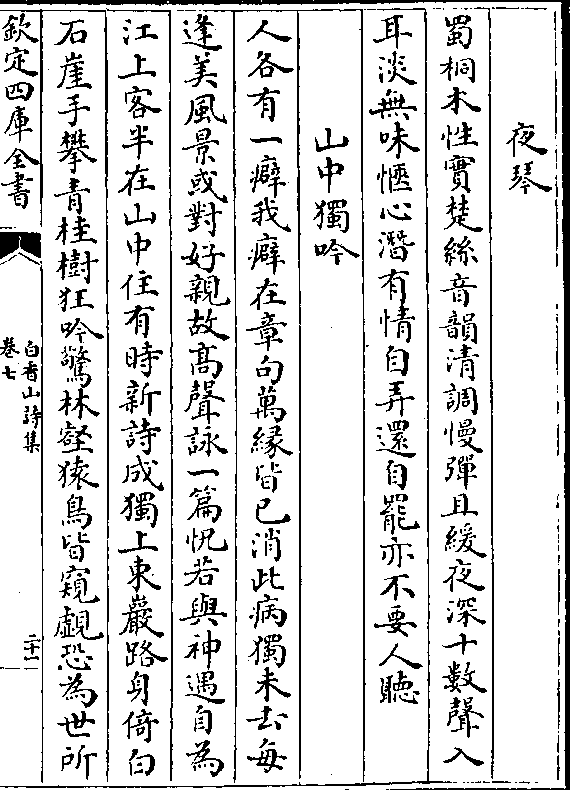 夜琴
蜀桐木性實楚絲音韻清調慢彈且緩夜深十數聲入
耳淡無味愜心潛有情自弄還自罷亦不要人聽
山中獨吟
人各有一癖我癖在章句萬緣皆已消此病獨未去每
逢美風景或對好親故高聲詠一篇怳若與神遇自為
江上客半在山中住有時新詩成獨上東巖路身倚白
石崖手攀青桂樹狂吟驚林壑猿鳥皆窺覷恐為世所
欽定四庫全書
白香山詩集
卷七
二十一